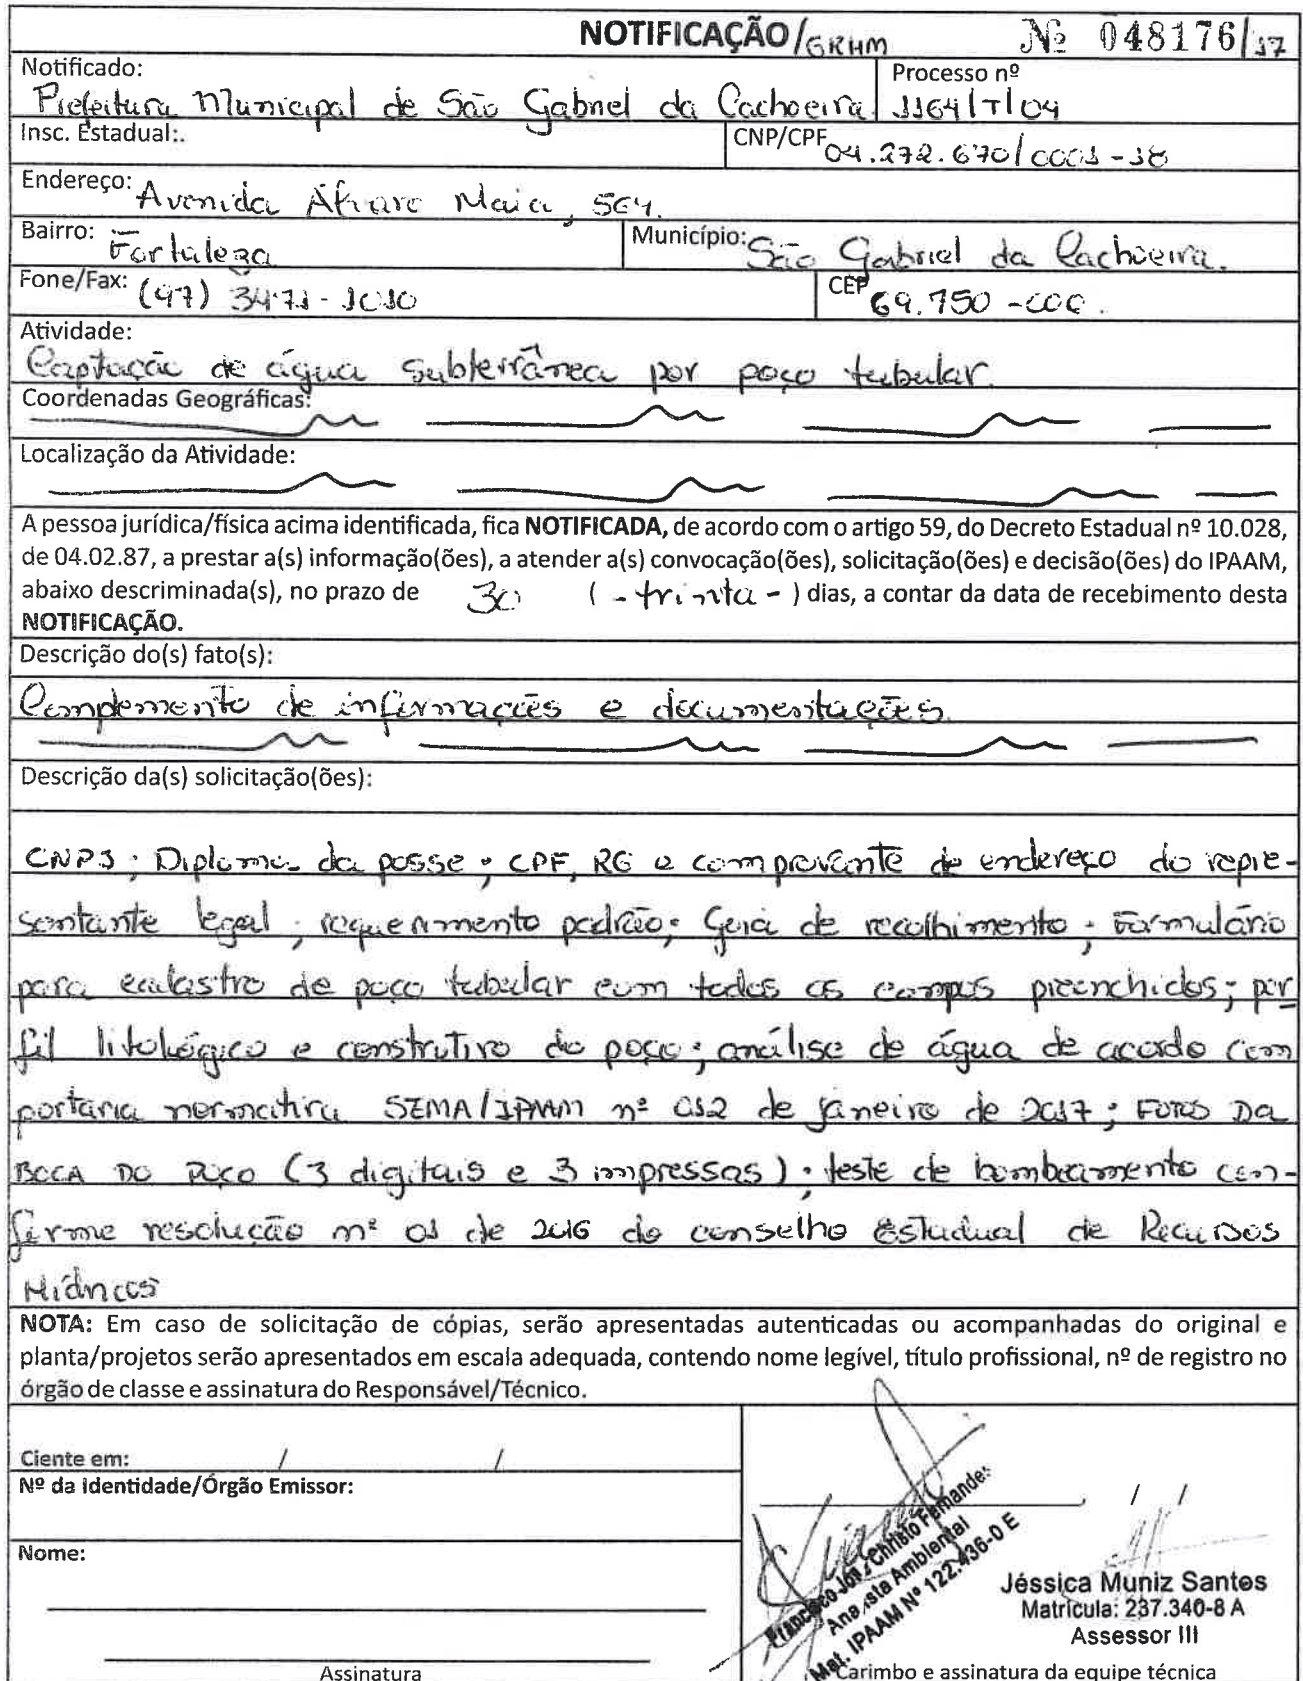 NOTIFICAÇÃO/GRHM Nº 048176/17
Notificado:
Prefeitura Municipal de São Gabriel da Cachoeira
Processo nº
1164/T/04
Insc. Estadual:.
CNP/CPF 04.272.670/0001-18
Endereço: Avenida Álvaro Maia, 564.
Bairro: Fortaleza
Município: São Gabriel da Cachoeira.
Fone/Fax: (97) 3471-1010
CEP 69.750-000.
Atividade:
Captação de água subterrânea por poço tubular.
Coordenadas Geográficas:
Localização da Atividade:
A pessoa jurídica/física acima identificada, fica NOTIFICADA, de acordo com o artigo 59, do Decreto Estadual nº 10.028,
de 04.02.87, a prestar a(s) informação(ões), a atender a(s) convocação(ões), solicitação(ões) e decisão(ões) do IPAAM,
abaixo descriminada(s), no prazo de 30 (-trinta-) dias, a contar da data de recebimento desta
NOTIFICAÇÃO.
Descrição do(s) fato(s):
Complemento de informações e documentações.
Descrição da(s) solicitação(ões):
CNPJ; Diploma da posse; CPF, RG e comprovante de endereço do repre-
sentante legal; requerimento padrão; Guia de recolhimento; Formulário
para cadastro de poço tubular com todos os campos preenchidos; per
fil litológico e construtivo do poço; análise de água de acordo com
portaria normativa SEMA/IPAAM nº 012 de janeiro de 2017; FOTOS DA
BOCA DO POÇO (3 digitais e 3 impressas); teste de bombeamento con-
forme resolução nº 01 de 2016 do conselho Estadual de Recursos
Hídricos
NOTA: Em caso de solicitação de cópias, serão apresentadas autenticadas ou acompanhadas do original e
planta/projetos serão apresentados em escala adequada, contendo nome legível, título profissional, nº de registro no
órgão de classe e assinatura do Responsável/Técnico.
Ciente em: / /
Nº da Identidade/Órgão Emissor:
Nome:
Assinatura
, / /
Francisco José Christo Fernandes
Analista Ambiental
Mat. IPAAM Nº 122.436-0 E
Jéssica Muniz Santos
Matrícula: 237.340-8 A
Assessor III
Carimbo e assinatura da equipe técnica